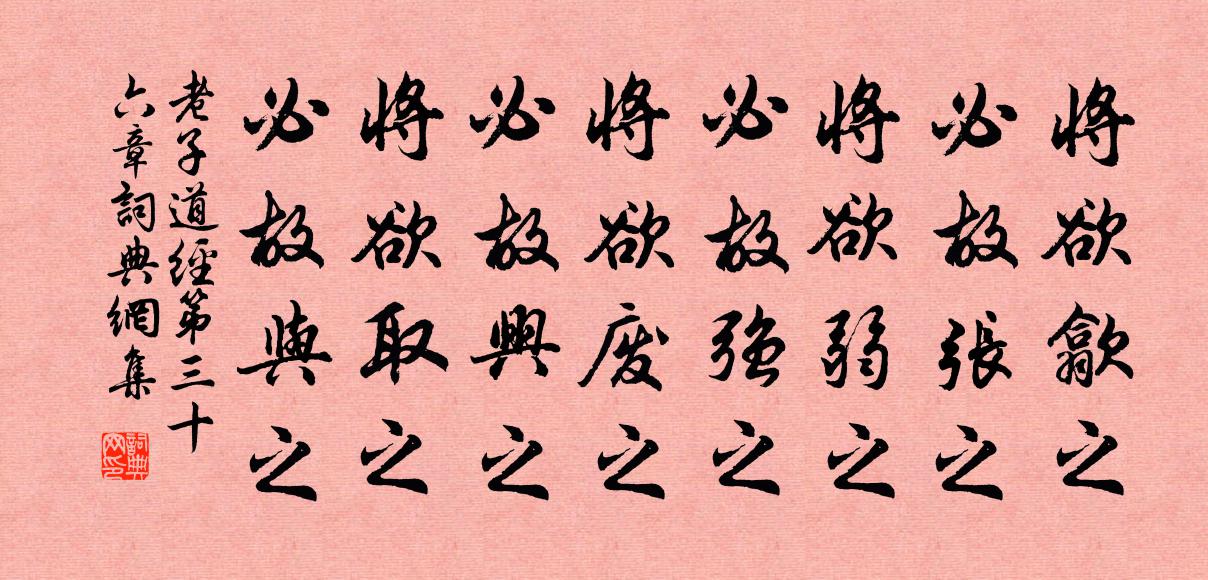 將欲歙之
必故張之
將欲弱之
必故強之
將欲廢之
必故興之
將欲取之
必故與之
老子道經第三十
六章詞典網集
詞典
网印